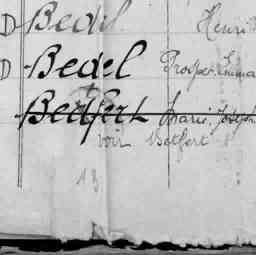 D Bedel Henri
D Bedel Prosper Emma
Betfert Marie Joseph
voir Betfert
13